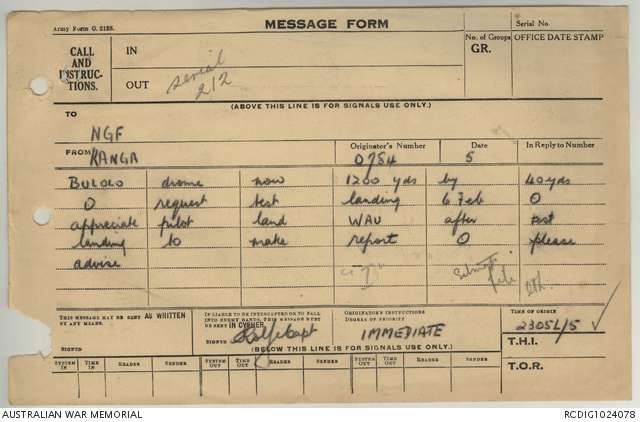 Army Form C. 2128.
MESSAGE FORM
Serial No.
CALL AND INSTRUC-TIONS.
IN
No. of Groups GR.
OFFICE DATE STAMP
OUT
serial 212
(ABOVE THIS LINE IS FOR SIGNALS USE ONLY.)
TO
NGF
FROM KANGA
Originator's Number 0784
Date 5
In Reply to Number
BULOLO drome now 1200 yds by 40 yds
O request test landing 6 Feb O
appreciate pilot land WAU after
landing to make report O please
advise
"I"
THIS MESSAGE MAY BE SENT AS WRITTEN BY ANY MEANS.
SIGNED
IF LIABLE TO BE INTERCEPTED OR TO FALL INTO ENEMY HANDS, THIS MESSAGE MUST BE SENT IN CYPHER.
SIGNED Capt
ORIGINATOR'S INSTRUCTIONS DEGREE OF PRIORITY
IMMEDIATE
TIME OF ORIGIN
2305L/5
(BELOW THIS LINE IS FOR SIGNALS USE ONLY.)
T.H.I.
T.O.R.
SYSTEM IN TIME IN READER SENDER SYSTEM OUT TIME OUT READER SENDER SYSTEM OUT TIME OUT READER SENDER
AUSTRALIAN WAR MEMORIAL
RCDIG1024078